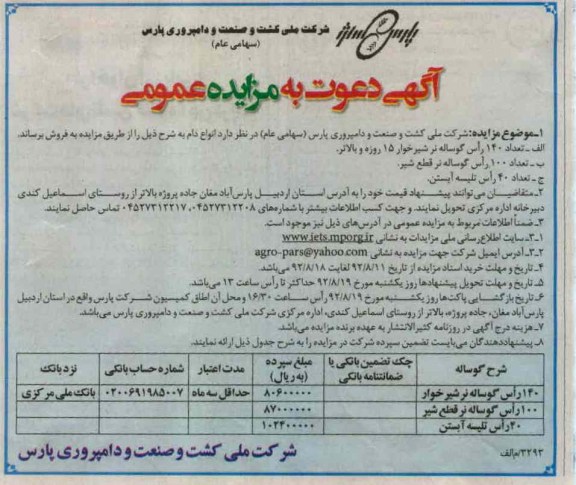 پارس
شرکت ملی کشت و صنعت و دامپروری پارس
(سهامی عام)
آگهی دعوت به مزایده عمومی
۱-موضوع مزایده: شرکت ملی کشت و صنعت و دامپروری پارس (سهامی عام) در نظر دارد انواع دام به شرح ذیل را از طریق مزایده به فروش برساند.
الف - تعداد ۱۴۰ رأس گوساله نر شیرخوار ۱۵ روزه و بالاتر.
ب - تعداد ۱۰۰ رأس گوساله نر قطع شیر.
ج - تعداد ۴۰ رأس تلیسه آبستن.
۲-متقاضیان می‌توانند پیشنهاد قیمت خود را به آدرس استان اردبیل پارس‌آباد مغان جاده پروژه بالاتر از روستای اسماعیل کندی
دبیرخانه اداره مرکزی تحویل نمایند. و جهت کسب اطلاعات بیشتر با شماره‌های ۰۴۵۲۷۳۱۲۲۰۸، ۰۴۵۲۷۳۱۲۲۱۷ تماس حاصل نمایند.
۳- ضمناً اطلاعات مربوط به مزایده عمومی در آدرس‌های ذیل نیز موجود است.
۳-۱- سایت اطلاع‌رسانی ملی مزایدات به نشانی www.iets.mporg.ir
۳-۲- آدرس ایمیل شرکت جهت مزایده به نشانی agro-pars@yahoo.com
۴- تاریخ و مهلت خرید اسناد مزایده از تاریخ ۹۲/۸/۱۱ لغایت ۹۲/۸/۱۸ می‌باشد.
۵- تاریخ و مهلت تحویل پیشنهادها روز یکشنبه مورخ ۹۲/۸/۱۹ حداکثر تا رأس ساعت ۱۳ می‌باشد.
۶- تاریخ بازگشایی پاکت‌ها روز یکشنبه مورخ ۹۲/۸/۱۹ رأس ساعت ۱۶/۳۰ و محل آن اطاق کمیسیون شرکت پارس واقع در استان اردبیل
پارس‌آباد مغان، جاده پروژه، بالاتر از روستای اسماعیل کندی، اداره مرکزی شرکت ملی کشت و صنعت و دامپروری پارس می‌باشد.
۷- هزینه درج آگهی در روزنامه کثیرالانتشار به عهده برنده مزایده می‌باشد.
۸- پیشنهاددهندگان می‌بایست تضمین سپرده شرکت در مزایده را به شرح جدول ذیل ارائه نمایند.
شرح گوساله چک تضمین بانکی یا ضمانتنامه بانکی مبلغ سپرده (به ریال) مدت اعتبار شماره حساب بانکی نزد بانک
۱۴۰ رأس گوساله نر شیر خوار ۸۰۶۰۰۰۰۰ حداقل سه ماه ۰۲۰۰۶۹۱۹۸۵۰۰۷ بانک ملی مرکزی
۱۰۰ رأس گوساله نر قطع شیر ۸۷۰۰۰۰۰۰
۴۰ رأس تلیسه آبستن ۱۰۲۴۰۰۰۰۰
۳۲۹۳/م‌الف
شرکت ملی کشت و صنعت و دامپروری پارس